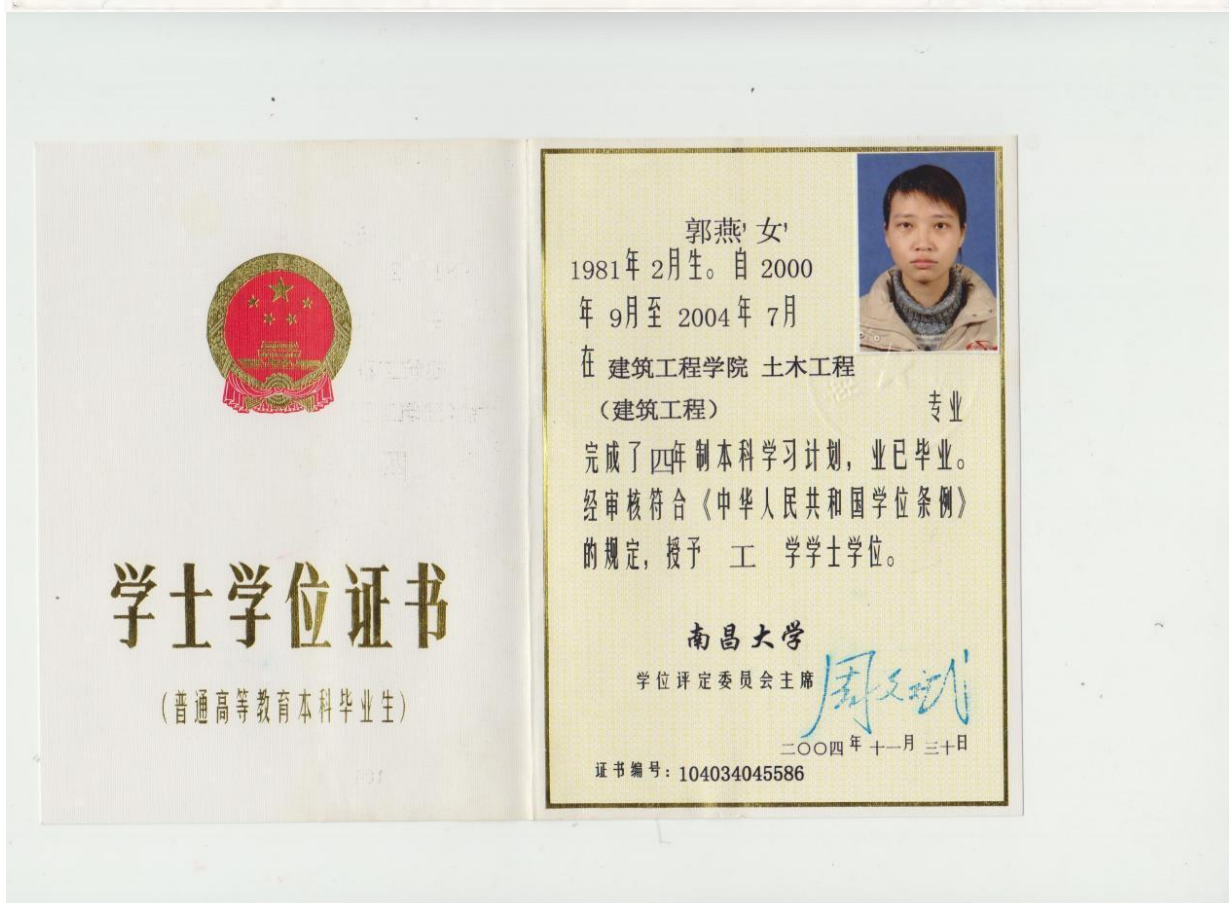 学士学位证书
(普通高等教育本科毕业生)
郭燕, 女,
1981年 2月生。自 2000
年 9月至 2004年 7月
在 建筑工程学院 土木工程
（建筑工程） 专业
完成了四年制本科学习计划，业已毕业。
经审核符合《中华人民共和国学位条例》
的规定，授予 工 学学士学位。
南昌大学
学位评定委员会主席 周文斌
二〇〇四年 十一月 三十日
证书编号：104034045586